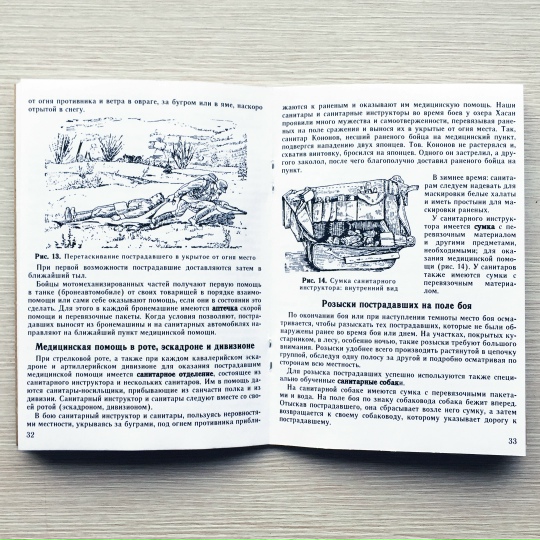 от огня противника и ветра в овраге, за бугром или в яме, наскоро
отрытой в снегу.
Рис. 13. Перетаскивание пострадавшего в укрытое от огня место
При первой возможности пострадавшие доставляются затем в
ближайший тыл.
Бойцы мотомеханизированных частей получают первую помощь
в танке (бронеавтомобиле) от своих товарищей в порядке взаимо-
помощи или сами себе оказывают помощь, если они в состоянии это
сделать. Для этого в каждой бронемашине имеются аптечка скорой
помощи и перевязочные пакеты. Когда условия позволяют, постра-
давших выносят из бронемашины и на санитарных автомобилях на-
правляют на ближайший пункт медицинской помощи.
Медицинская помощь в роте, эскадроне и дивизионе
При стрелковой роте, а также при каждом кавалерийском эска-
дроне и артиллерийском дивизионе для оказания пострадавшим
медицинской помощи имеется санитарное отделение, состоящее из
санитарного инструктора и нескольких санитаров. Им в помощь да-
ются санитары-носильщики, прибывающие из санчасти полка и из
дивизии. Санитарный инструктор и санитары следуют вместе со сво-
ей ротой (эскадроном, дивизионом).
В бою санитарный инструктор и санитары, пользуясь неровностя-
ми местности, укрываясь за буграми, под огнем противника прибли-
32
жаются к раненым и оказывают им медицинскую помощь. Наши
санитары и санитарные инструкторы во время боев у озера Хасан
проявили много мужества и самоотверженности, перевязывая ране-
ных на поле сражения и вынося их в укрытые от огня места. Так,
санитар Кононов, несший раненого бойца на медицинский пункт,
подвергся нападению двух японцев. Тов. Кононов не растерялся и,
схватив винтовку, бросился на японцев. Одного он застрелил, а дру-
гого заколол, после чего благополучно доставил раненого бойца на
пункт.
В зимнее время: санита-
рам следует надевать для
маскировки белые халаты
и иметь простыни для ма-
скировки раненых.
У санитарного инструк-
тора имеется сумка с пе-
ревязочным материалом
и другими предметами,
необходимыми; для ока-
зания медицинской помо-
щи (рис. 14). У санитаров
также имеются сумки с
перевязочным материа-
лом.
Рис. 14. Сумка санитарного
инструктора: внутренний вид
Розыски пострадавших на поле боя
По окончании боя или при наступлении темноты место боя осма-
тривается, чтобы разыскать тех пострадавших, которые не были об-
наружены ранее во время боя или днем. На участках, покрытых ку-
старником, в лесу, особенно ночью, такие розыски требуют большого
внимания. Розыски удобнее всего производить растянутой в цепочку
группой, обследуя одну полосу за другой и подробно осматривая по
сторонам всю местность.
Для розыска пострадавших успешно используются также специ-
ально обученные санитарные собаки.
На санитарной собаке имеются сумка с перевязочными пакета-
ми и вода. На поле боя по знаку собаковода собака бежит вперед.
Отыскав пострадавшего, она сбрасывает возле него сумку, а затем
возвращается к своему собаководу, которому указывает дорогу к
пострадавшему.
33